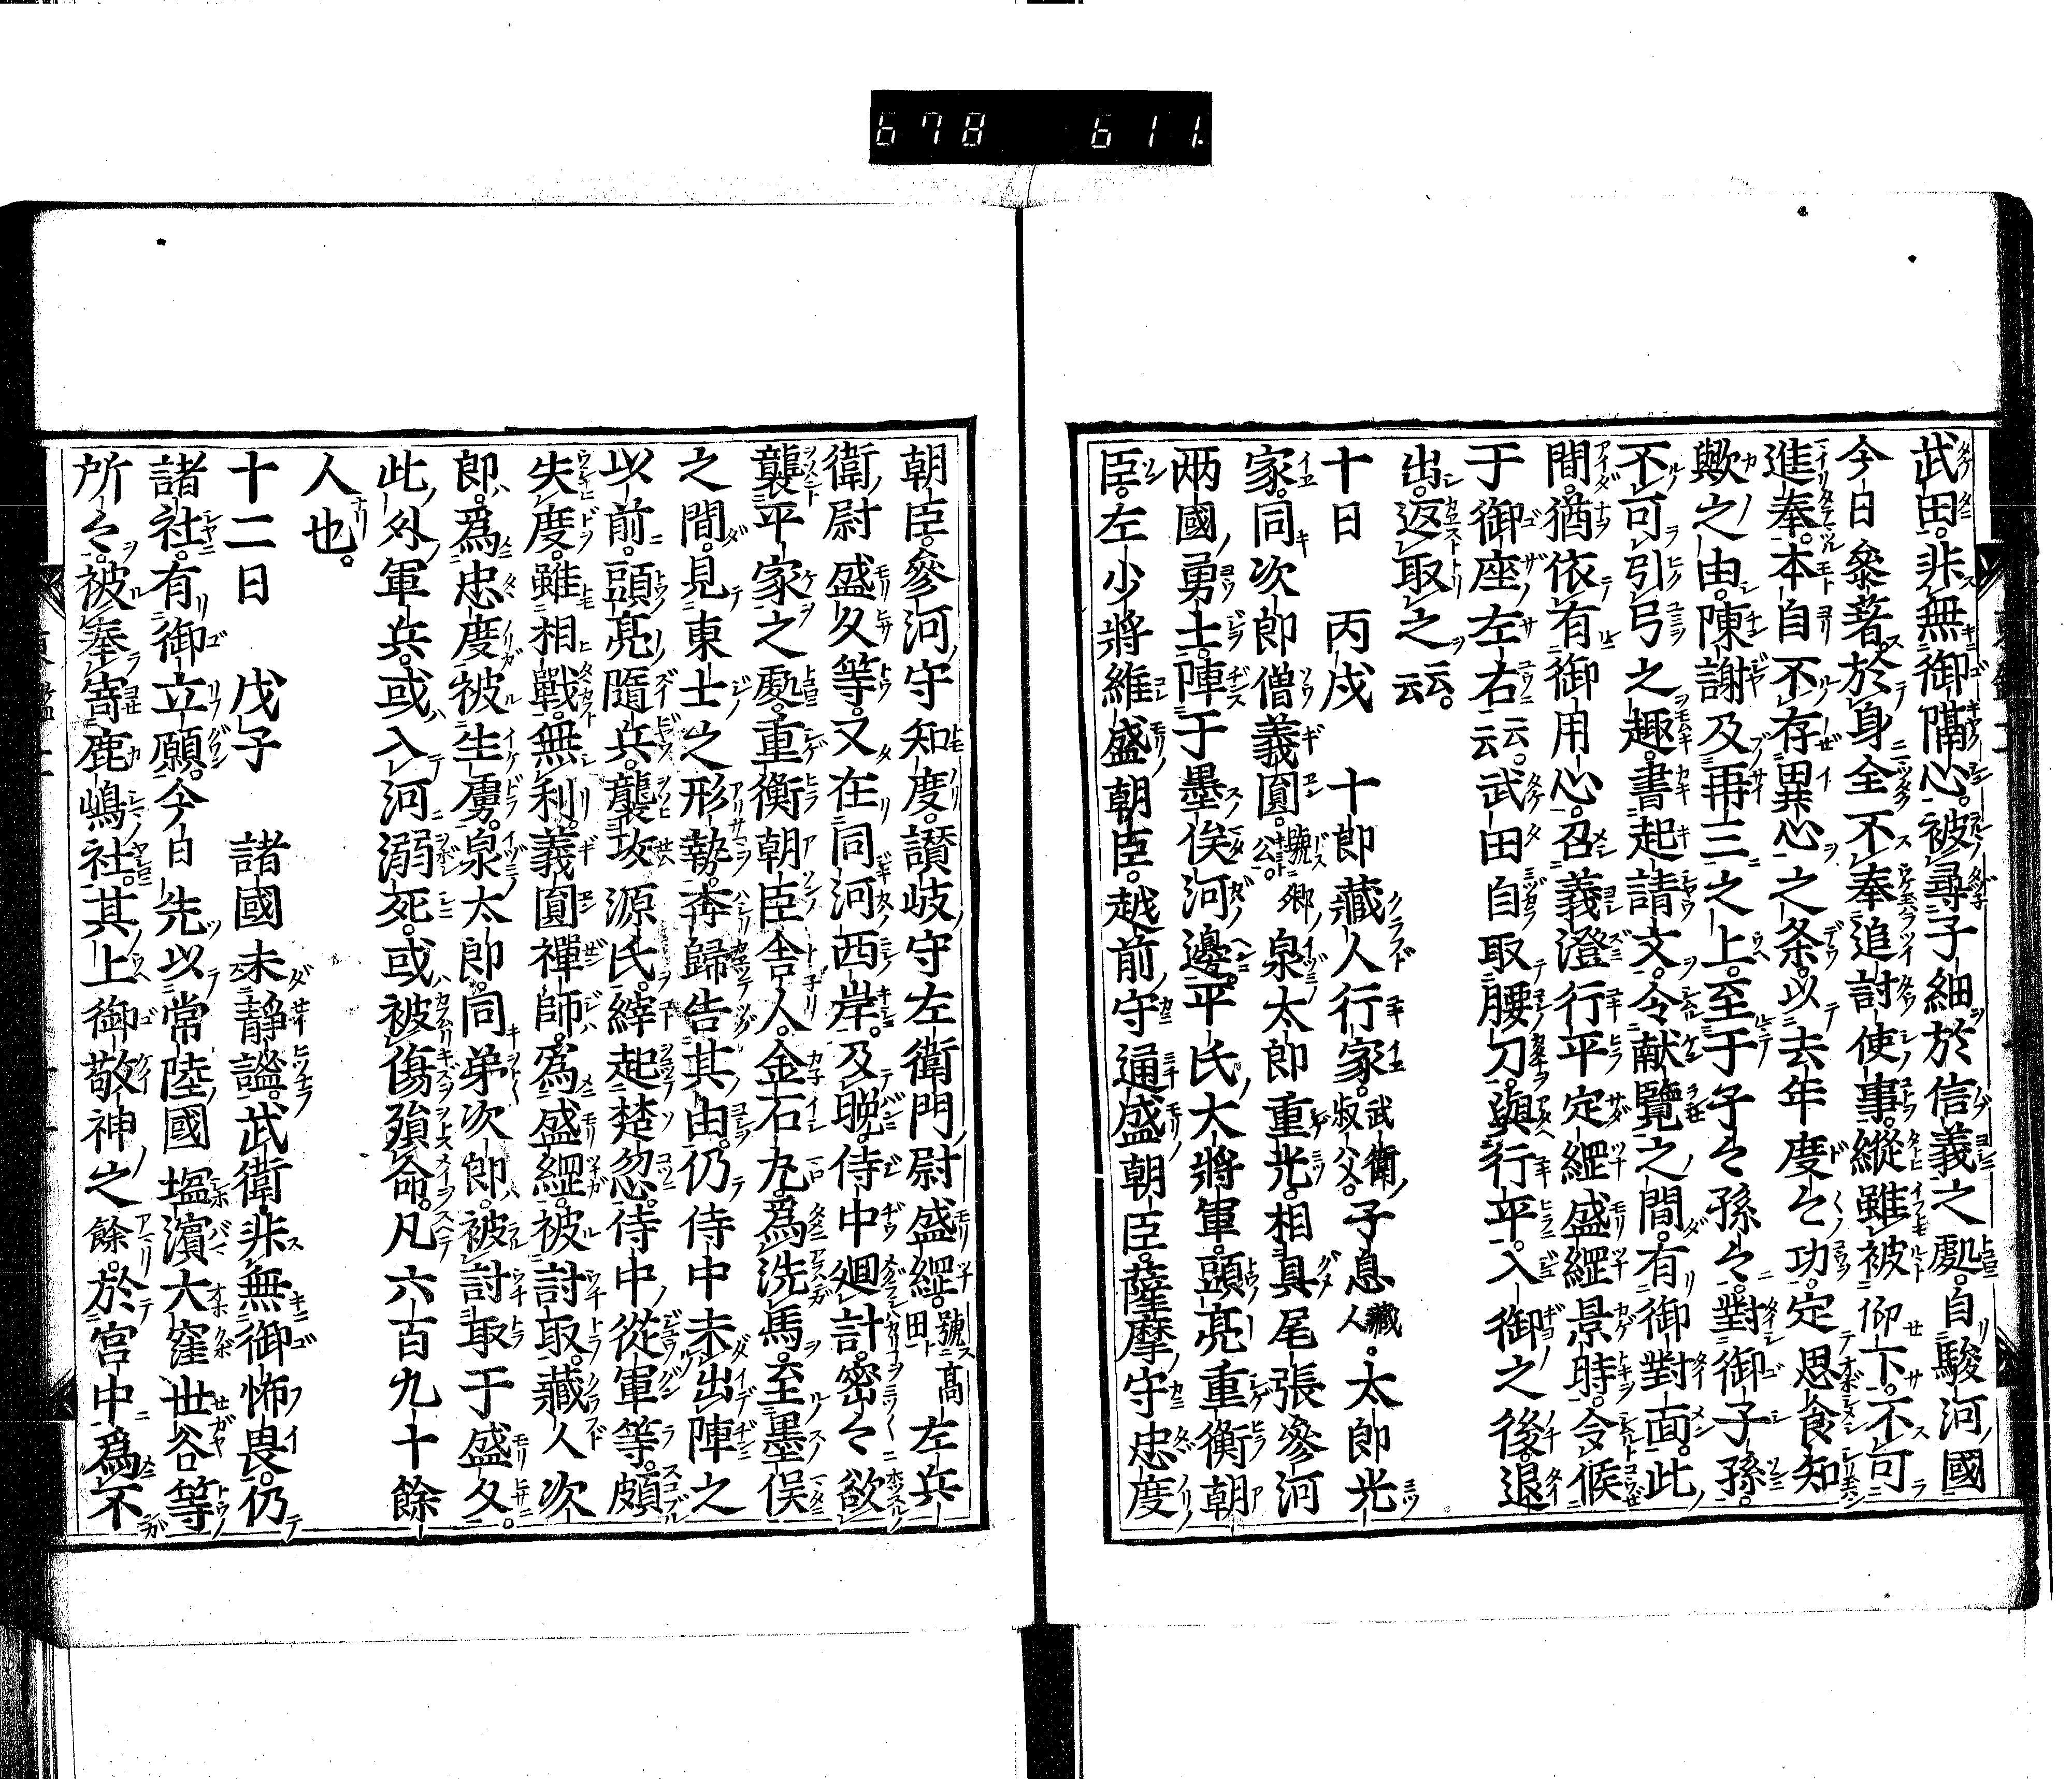 678 611.
武田。非無御隔心。被尋子細於信義之處。自駿河國
今日參著。於身全不奉追討使事。縱雖被仰下。不可
進奉。本自不存異心之条。以去年度々功。定思食知
歟之由。陳謝及再三之上。至于子々孫々。對御子孫。
不可引弓之趣。書起請文。令献覽之間。有御對面。此
間。猶依有御用心。召義澄行平定綱盛綱景時。令候
于御座左右云云。武田自取腰刀。與行平。入御之後。退
出。返取之云云。
十日 丙戌 十郎藏人行家。武衛叔父。子息藏人。太郎光
家。同次郎僧義圓。號卿公。泉太郎重光。相具尾張參河
兩國勇士。陣于墨俣河邊。平氏大將軍。頭亮重衡朝
臣。左少將維盛朝臣。越前守通盛朝臣。薩摩守忠度
朝臣。參河守知度。讃岐守左衛門尉盛綱。號高田。左兵
衛尉盛久等。又在同河西岸。及晩。侍中廻計。密々欲
襲平家之處。重衡朝臣舎人。金石丸。爲洗馬。至墨俣
之間。見東士之形勢。奔歸告其由。仍侍中未出陣之
以前。頭亮隨兵。襲攻源氏。縡起楚忽。侍中從軍等。頗
失度。雖相戰。無利。義圓禪師。爲盛綱。被討取。藏人次
郎。爲忠度被生虜。泉太郎。同弟次郎。被討取于盛久。
此外軍兵。或入河溺死。或被傷殞命。凡六百九十餘
人也。
十二日 戊子 諸國未靜謐。武衛。非無御怖畏。仍
諸社。有御立願。今日先以常陸國塩濱大窪世谷等
所々。被奉寄鹿嶋社。其上御敬神之餘。於宮中爲不